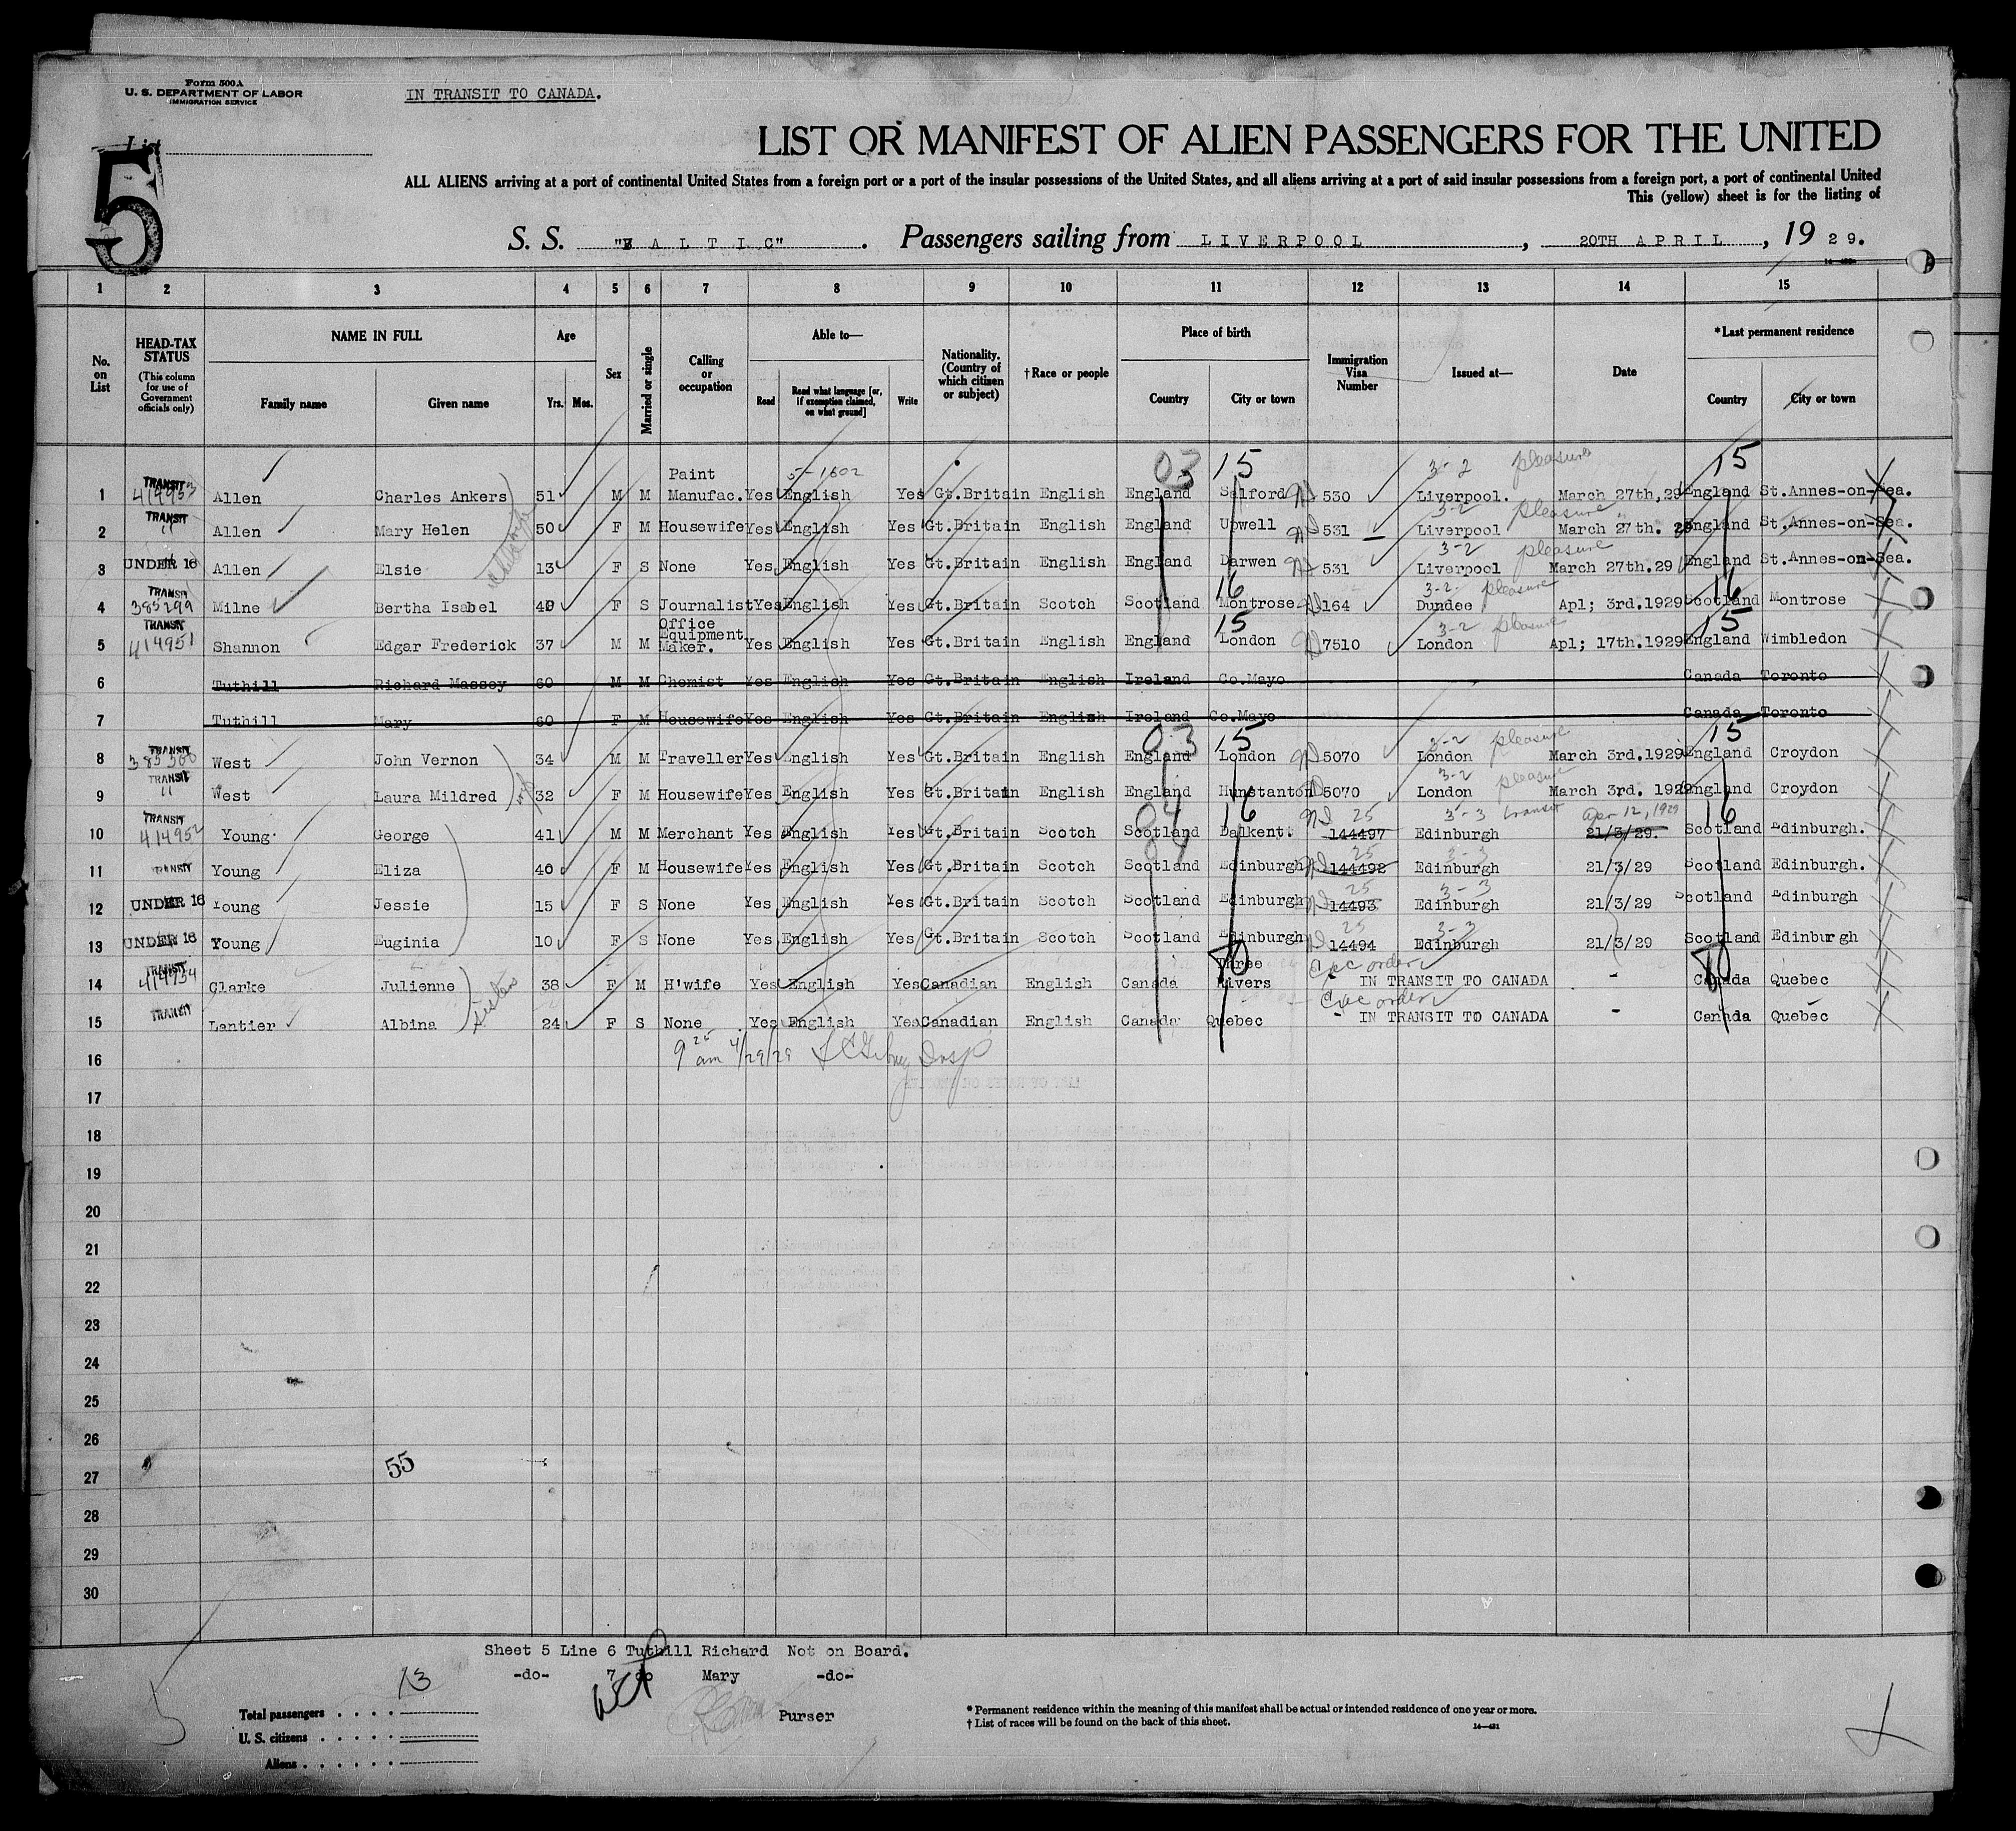 Form 500A
U. S. DEPARTMENT OF LABOR
IMMIGRATION SERVICE
IN TRANSIT TO CANADA.
List
5
LIST OR MANIFEST OF ALIEN PASSENGERS FOR THE UNITED
ALL ALIENS arriving at a port of continental United States from a foreign port or a port of the insular possessions of the United States, and all aliens arriving at a port of said insular possessions from a foreign port, a port of continental United
This (yellow) sheet is for the listing of
S. S. "BALTIC". Passengers sailing from LIVERPOOL, 20TH APRIL, 1929.
1 2 3 4 5 6 7 8 9 10 11 12 13 14 15
No. on List
HEAD-TAX STATUS (This column for use of Government officials only)
NAME IN FULL Family name Given name
Age Yrs. Mos.
Sex
Married or single
Calling or occupation
Able to— Read Read what language [or, if exemption claimed, on what ground] Write
Nationality. (Country of which citizen or subject)
†Race or people
Place of birth Country City or town
Immigration Visa Number
Issued at—
Date
*Last permanent residence Country City or town
5-1602 03 15 3-2 pleasure 15
1 TRANSIT 414953 Allen Charles Ankers 51 M M Paint Manufac. Yes English Yes Gt.Britain English England Salford 530 Liverpool. March 27th,29 England St.Annes-on-Sea.
3-2 pleasure
2 TRANSIT " Allen Mary Helen 50 F M Housewife Yes English Yes Gt.Britain English England Upwell 531 Liverpool March 27th. 29 England St.Annes-on-Sea.
3-2 pleasure
3 UNDER 16 Allen Elsie 13 F S None Yes English Yes Gt.Britain English England Darwen 531 Liverpool March 27th.29 England St.Annes-on-Sea.
16 3-2 pleasure 16
4 TRANSIT 385299 Milne Bertha Isabel 40 F S Journalist Yes English Yes Gt.Britain Scotch Scotland Montrose 164 Dundee Apl; 3rd.1929 Scotland Montrose
15 3-2 pleasure 15
5 TRANSIT 414951 Shannon Edgar Frederick 37 M M Office Equipment Maker. Yes English Yes Gt.Britain English England London 7510 London Apl; 17th.1929 England Wimbledon
6 Tuthill Richard Massey 60 M M Chemist Yes English Yes Gt.Britain English Ireland Co.Mayo Canada Toronto
7 Tuthill Mary 60 F M Housewife Yes English Yes Gt.Britain English Ireland Co.Mayo Canada Toronto
03 15 3-2 pleasure 15
8 TRANSIT 385300 West John Vernon 34 M M Traveller Yes English Yes Gt.Britain English England London 5070 London March 3rd.1929 England Croydon
3-2 pleasure
9 TRANSIT " West Laura Mildred wife 32 F M Housewife Yes English Yes Gt.Britain English England Hunstanton 5070 London March 3rd. 1929 England Croydon
04 16 25 3-3 transit Apr 12, 1929 16
10 TRANSIT 414952 Young George 41 M M Merchant Yes English Yes Gt.Britain Scotch Scotland Dalkent. 144497 Edinburgh 21/3/29. Scotland Edinburgh.
04 25 3-3
11 TRANSIT Young Eliza 40 F M Housewife Yes English Yes Gt.Britain Scotch Scotland Edinburgh 144492 Edinburgh 21/3/29 Scotland Edinburgh.
25 3-3
12 UNDER 16 Young Jessie 15 F S None Yes English Yes Gt.Britain Scotch Scotland Edinburgh 14493 Edinburgh 21/3/29 Scotland Edinburgh
25 3-3
13 UNDER 16 Young Euginia 10 F S None Yes English Yes Gt.Britain Scotch Scotland Edinburgh 14494 Edinburgh 21/3/29 Scotland Edinburgh
14 TRANSIT 414954 Clarke Julienne sisters 38 F M H'wife Yes English Yes Canadian English Canada Three Rivers - IN TRANSIT TO CANADA - Canada Quebec
15 TRANSIT Lantier Albina 24 F S None Yes English Yes Canadian English Canada Quebec - IN TRANSIT TO CANADA - Canada Quebec
16 9 25 am 4/29/29
17
18
19
20
21
22
23
24
25
26
27 55
28
29
30
Sheet 5 Line 6 Tuthill Richard Not on Board.
-do- 7 do Mary -do-
13
Purser
Total passengers
U. S. citizens
Aliens
* Permanent residence within the meaning of this manifest shall be actual or intended residence of one year or more.
† List of races will be found on the back of this sheet.
14—431